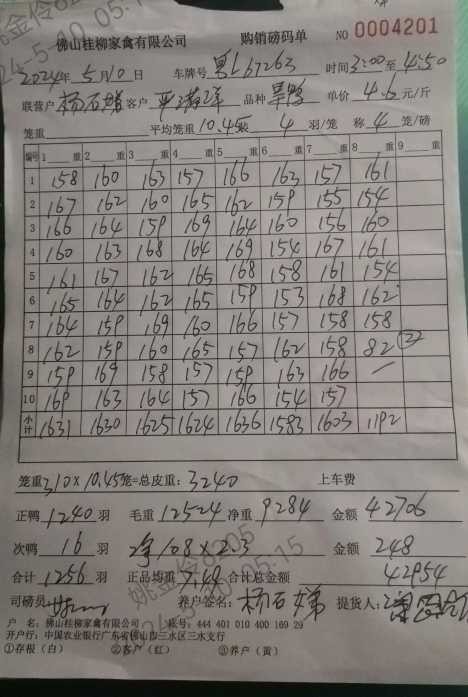 佛山桂柳家禽有限公司 购销磅码单 NO 0004201
2024年 5月10日 车牌号 粤L67263 时间3:00至4:50
联营户 杨石娣 客户 品种 单价 4.6元/斤
笼重 平均笼重10.45 装 4 羽/笼 称 4 笼/磅
编号 1 重 2 重 3 重 4 重 5 重 6 重 7 重 8 重 9 重
1 158 160 163 157 166 163 157 161
2 167 162 160 165 162 159 155 154
3 166 164 159 169 164 160 156 160
4 160 163 168 164 169 154 167 161
5 161 167 162 165 168 158 161 154
6 165 164 162 165 159 153 168 162
7 164 159 169 160 166 157 158 158
8 162 159 160 165 157 162 158 82 ②
9 159 169 158 157 159 163 166 —
10 169 163 164 157 166 154 157
小计 1631 1630 1625 1624 1636 1583 1603 1192
笼重310×10.45笼=总皮重:3240 上车费
正鸭1240羽 毛重12524净重9284 金额42706
次鸭 16 羽 净108×2.3 金额 248
合计1256羽 正品均重7.49合计总金额 42954
司磅员 养户签名:杨石娣 提货人:
户 名:佛山桂柳家禽有限公司 帐号:444 401 010 400 169 29
开户行:中国农业银行广东省佛山市三水区三水支行
①存根(白) ②客户(红) ③养户(黄)
姚金伶8205
24-5-10 05:15